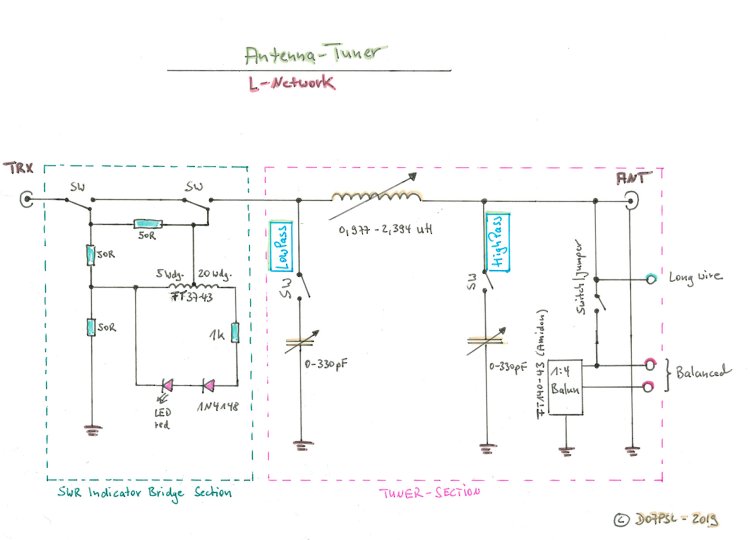 Antenna-Tuner
L-Network
TRX
SW
SW
ANT
50R
0,977-2,394 uH
LowPass
HighPass
50R
5 Wdg.
20 Wdg.
FT37-43
SW
SW
Switch/jumper
Long wire
50R
1k
0-330pF
0-330pF
FT140-43 (Amidon)
1:4
Balun
Balanced
LED
red
1N4148
SWR Indicator Bridge Section
TUNER-SECTION
© DO7PSL-2019